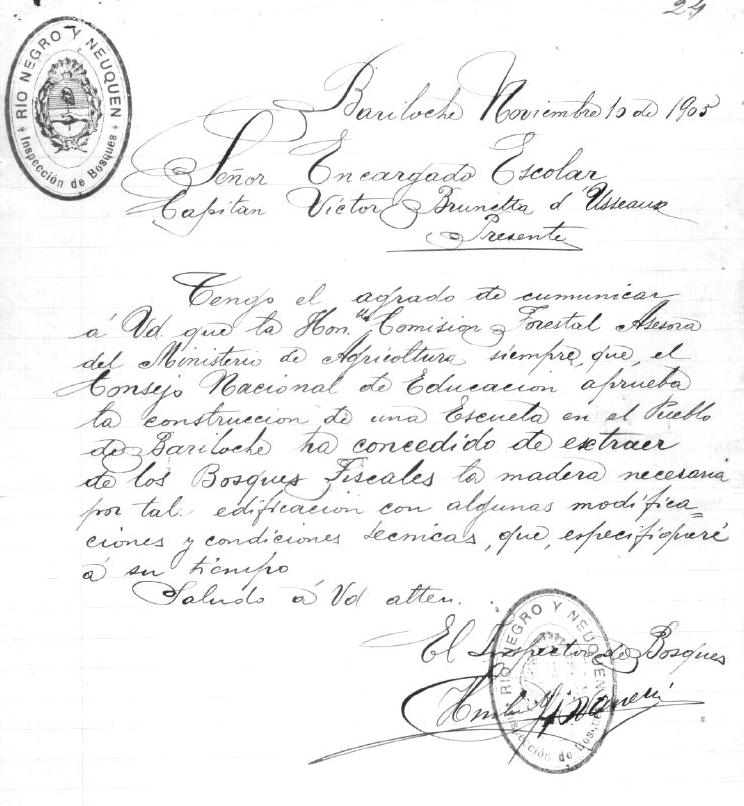 24
RÍO NEGRO Y NEUQUEN
Inspección de Bosques
Bariloche Noviembre 10 de 1905
Señor Encargado Escolar
Capitan Victor Brunetta d'Usseaux
Presente
Tengo el agrado de cumunicar
á Vd. que la Hon.ble Comision Forestal Asesora
del Ministerio de Agricoltura siempre, que, el
Consejo Nacional de Educacion aprueba
la construccion de una Escuela en el Pueblo
de Bariloche ha concedido de extraer
de los Bosques Fiscales la madera necesaria
por tal edificacion con algunas modifica=
ciones y condiciones tecnicas, que, especifiqueré
á su tiempo
Saludo á Vd atten.
El Inspector de Bosques
RÍO NEGRO Y NEUQUEN
Inspección de Bosques